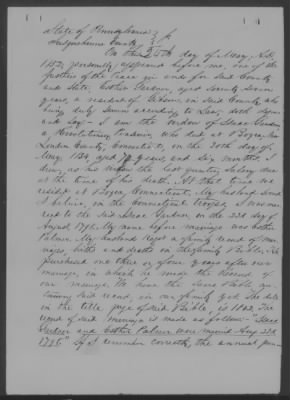 State of Pennsylvania
Susquehanna County } SS
On this 25th day of May, A.D.
1852, personally appeared before me, one of the
Justices of the Peace in and for said County
and State, Esther Gardner, aged Seventy Seven
years, a resident of in said County, who
being duly sworn according to law, doth depose
and say. I am the widow of Gardner
a Revolutionary Pensioner, who died at Bozrah, New
London County, Connecticut, on the 20th day of
May 1834, aged 79 years, and six months. I
drew, as his widow the last quarters salary due
at the time of his death. At that time we
resided at Bozrah, Connecticut. My husband served
I believe, in the Connecticut troops. I was mar-
ried to the said Gardner, on the 22d day of
August 1795. My name before marriage was Esther
Palmer. My husband kept a family record of mar-
riages, births and deaths in the family Bible. He
purchased one three or four years after our
marriage, in which he made the record of
our marriage. We have the same Bible, con-
taining said record, in our family yet. The date
in the title page of said Bible, is 1802. The
record of said marriage is made as follows "
Gardner and Esther Palmer were married Aug 22d,
1795" If I remember correctly, the annual pen-